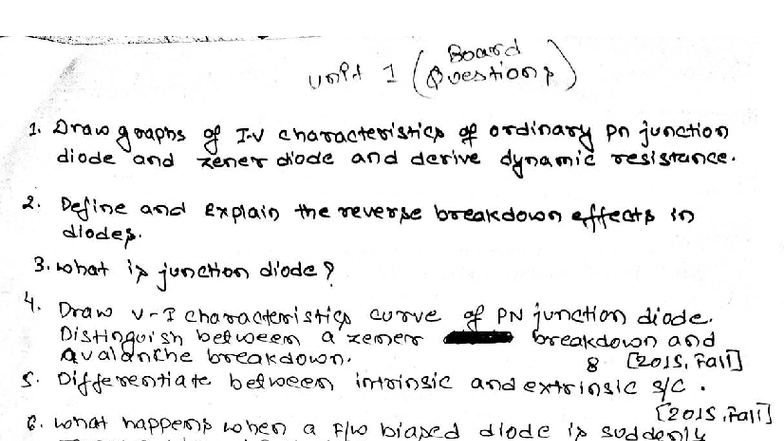 Unit 1 (Board Questions)
1. Draw graphs of I-V characteristics of ordinary Pn junction
diode and zener diode and derive dynamic resistance.
2. Define and Explain the reverse breakdown effects in
diodes.
3. What is junction diode?
4. Draw V-I characteristics curve of PN junction diode.
Distinguish between a zener breakdown and
avalanche breakdown. 8 [2015, Fall]
5. Differentiate between intrinsic and extrinsic s/c.
[2015, Fall]
6. What happens when a F/w biased diode is suddenly